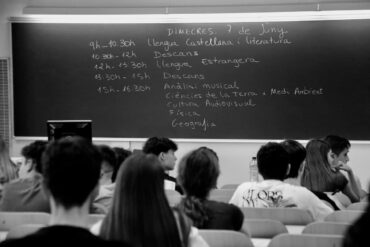 DIMECRES, 7 de Juny.
9h - 10:30h Llengua Castellana i literatura
10:30h - 12h Descans
12h - 13:30h Llengua Estrangera
13:30h - 15h Descans
15h - 16:30h Anàlisi musical
Ciències de la Terra i Medi Ambient
Cultura Audiovisual
Física
Geografia